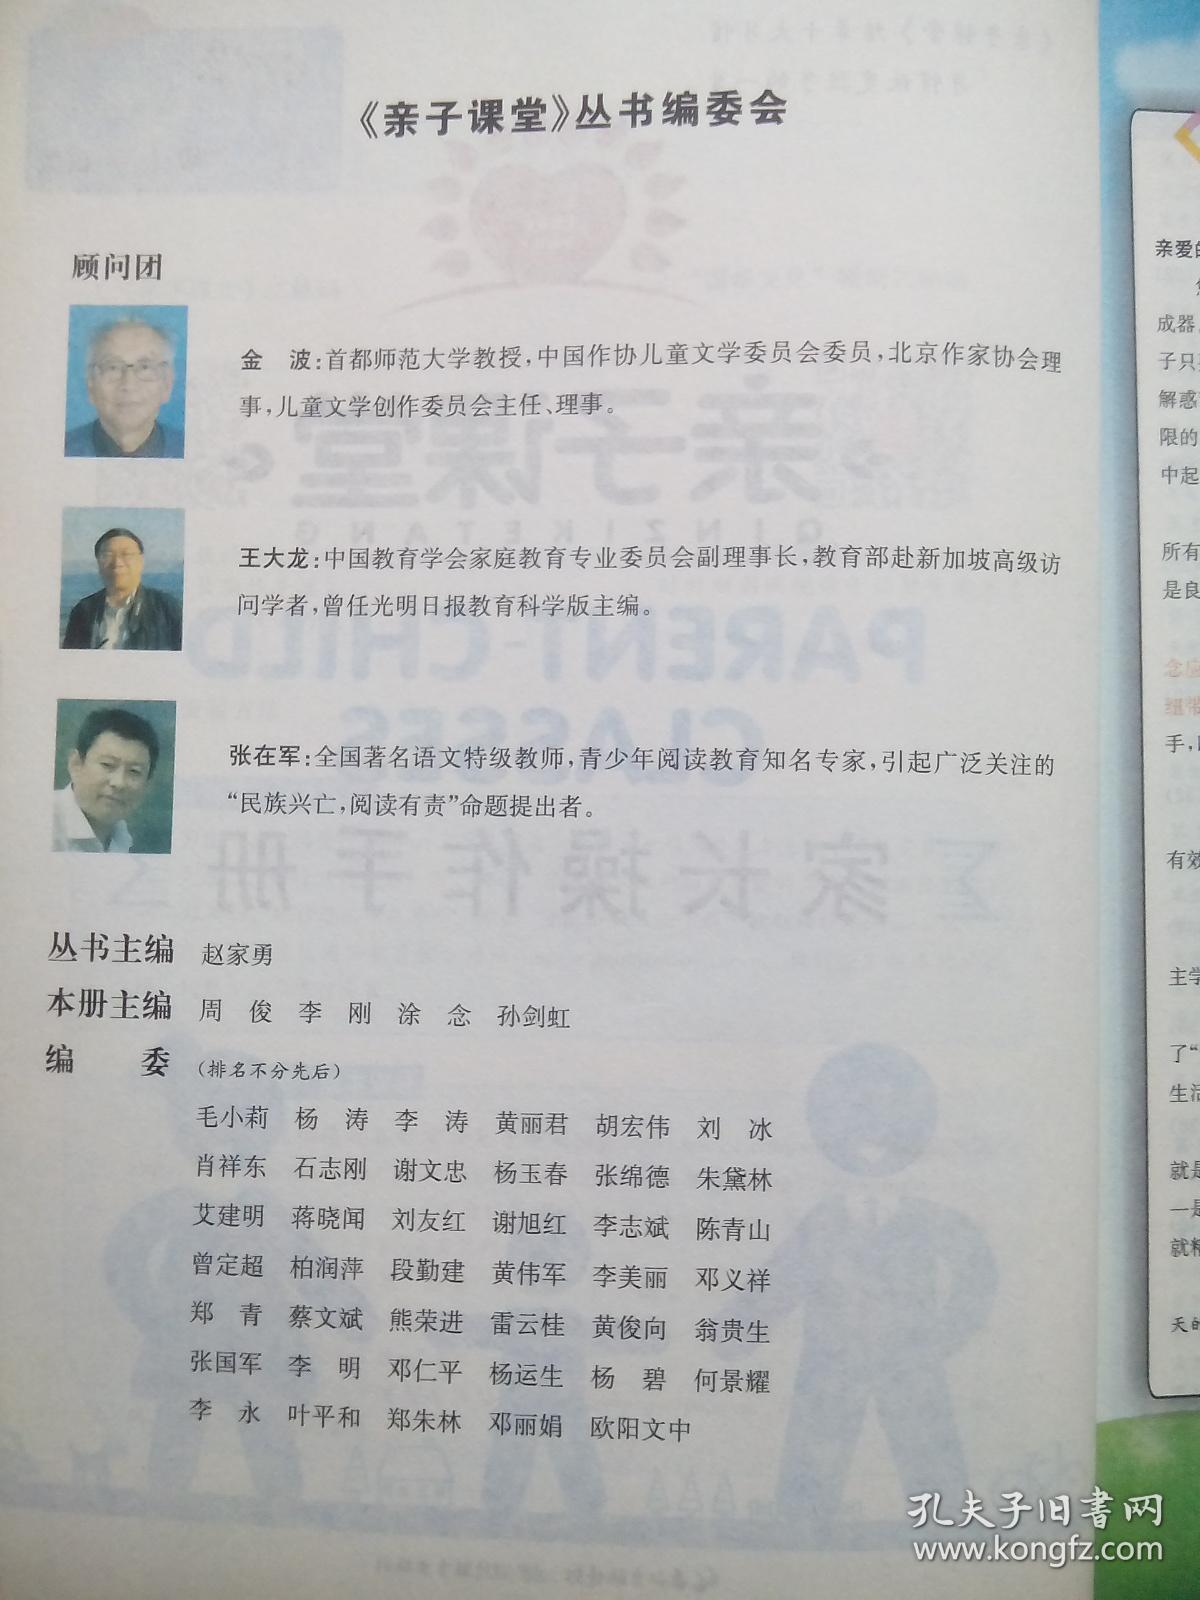 《亲子课堂》丛书编委会
顾问团
金　波：首都师范大学教授，中国作协儿童文学委员会委员，北京作家协会理
事，儿童文学创作委员会主任、理事。
王大龙：中国教育学会家庭教育专业委员会副理事长，教育部赴新加坡高级访
问学者，曾任光明日报教育科学版主编。
张在军：全国著名语文特级教师，青少年阅读教育知名专家，引起广泛关注的
“民族兴亡，阅读有责”命题提出者。
丛书主编　赵家勇
本册主编　周　俊　李　刚　涂　念　孙剑虹
编　　委　（排名不分先后）
毛小莉　杨　涛　李　涛　黄丽君　胡宏伟　刘　冰
肖祥东　石志刚　谢文忠　杨玉春　张绵德　朱黛林
艾建明　蒋晓闻　刘友红　谢旭红　李志斌　陈青山
曾定超　柏润萍　段勤建　黄伟军　李美丽　邓义祥
郑　青　蔡文斌　熊荣进　雷云桂　黄俊向　翁贵生
张国军　李　明　邓仁平　杨运生　杨　碧　何景耀
李　永　叶平和　郑朱林　邓丽娟　欧阳文中
亲爱的
成器
子只
解惑
限的
中起
所有
是良
念应
纽带
手，
有效
主学
了“
生活
就是
一是
就精
天的
家长操作手册
亲子课堂
QINZIKETANG
PARENT-CHILD
CLASSES
孔夫子旧书网
www.kongfz.com